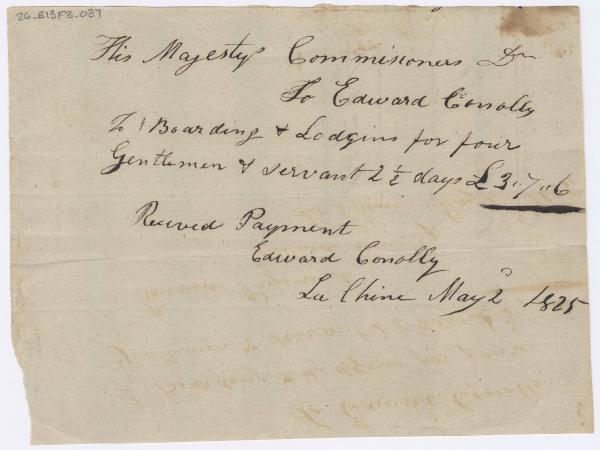 26_B13F3_037
His Majestys Commisioners Dr
To Edward Conolly
To Boarding & Lodgins for four
Gentlemen & servant 2 1/2 days £3"7"6
Receved Payment
Edward Conolly
La Chine May 2 1825